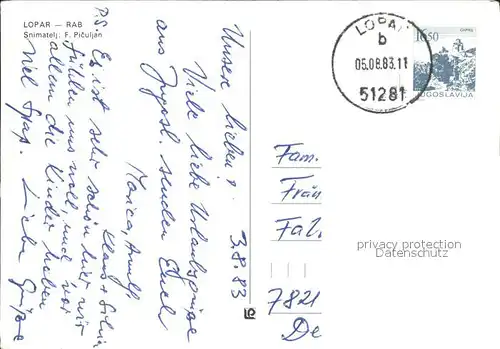 LOPAR — RAB
Snimatelj: F. Pičuljan
LOPAR
b
05.08.83.11
51281
16,50
JUGOSLAVIJA
3.8.83
Unsere Lieben!
Viele liebe Urlaubsgrüße
aus Jugosl. senden Euch
Klaus + Silvia
Monica,
P.S. Es ist sehr schön hier wir
fühlen uns wohl, und vor
allem die Kinder haben
viel Spaß. Liebe Grüße
Fam.
Fran
Fal
7821
De
privacy protection
Datenschutz